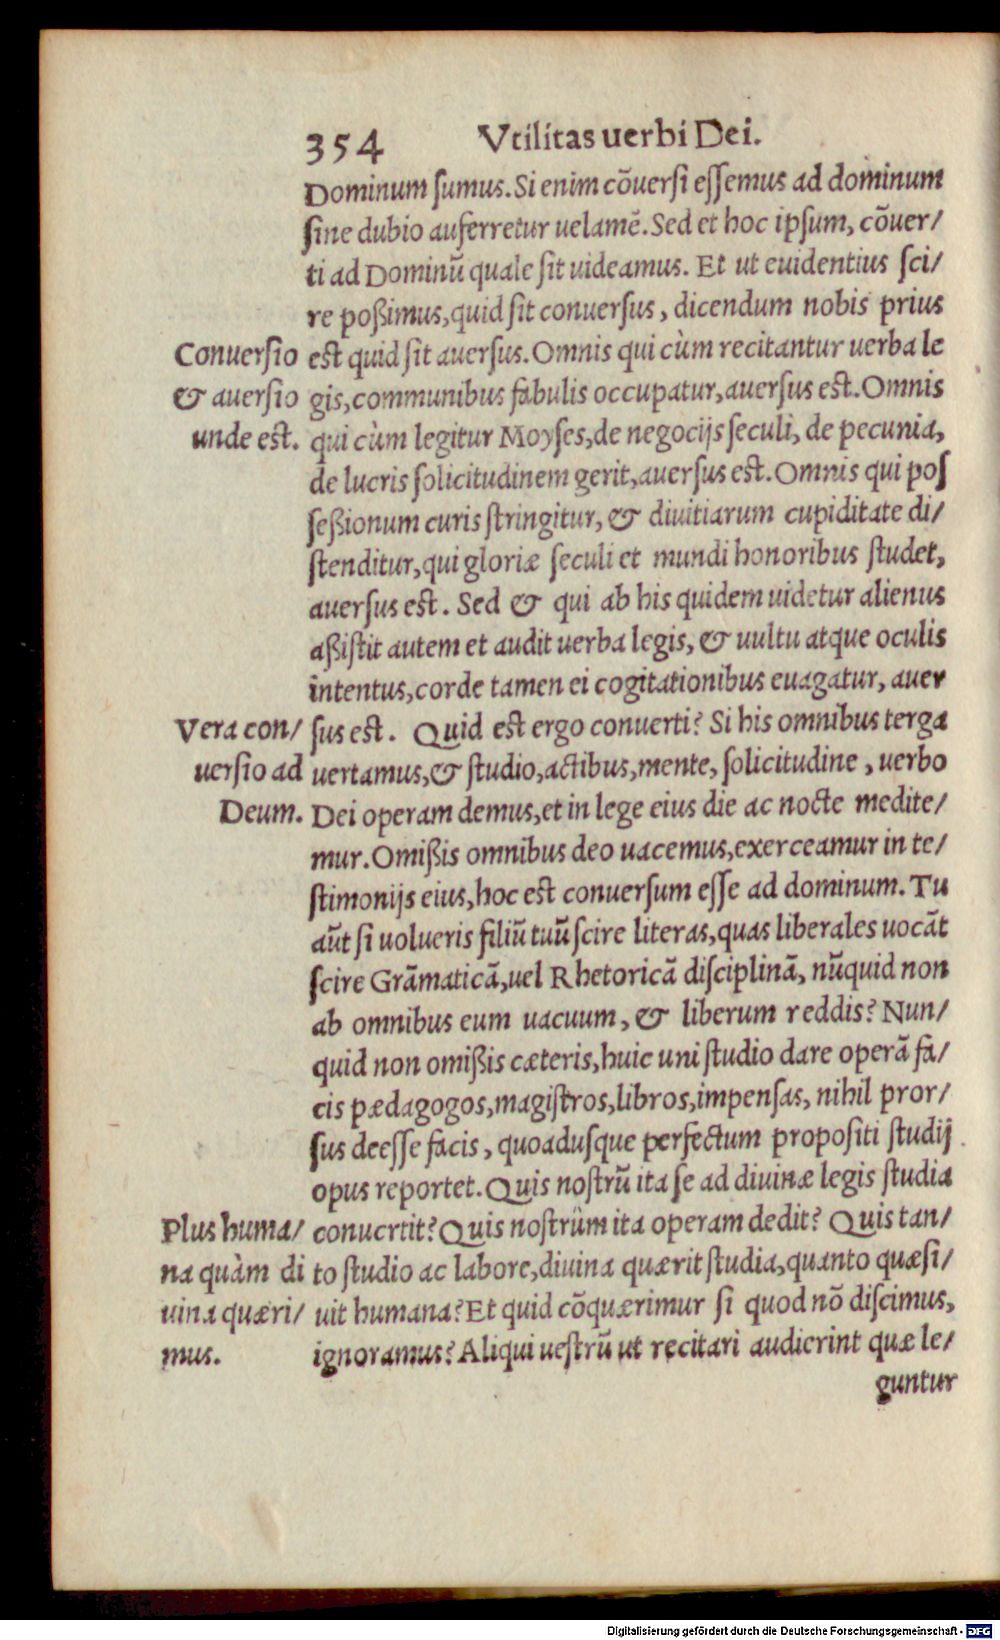 354 Vtilitas uerbi Dei.
Dominum ſumus. Si enim cõuerſi eſſemus ad dominum
ſine dubio auferretur uelamẽ. Sed et hoc ipſum, cõuer/
ti ad Dominũ quale ſit uideamus. Et ut euidentius ſci/
re poßimus, quid ſit conuerſus, dicendum nobis prius
Conuerſio
& auerſio
unde est.
est quid ſit auerſus. Omnis qui cùm recitantur uerba le
gis, communibus fabulis occupatur, auerſus est. Omnis
qui cùm legitur Moyſes, de negocijs ſeculi, de pecunia,
de lucris ſolicitudinem gerit, auerſus est. Omnis qui poſ
ſeßionum curis ſtringitur, & diuitiarum cupiditate di/
ſtenditur, qui gloriæ ſeculi et mundi honoribus ſtudet,
auerſus est. Sed & qui ab his quidem uidetur alienus
aßiſtit autem et audit uerba legis, & uultu atque oculis
intentus, corde tamen ei cogitationibus euagatur, auer
Vera con/
uerſio ad
Deum.
ſus est. Quid est ergo conuerti? Si his omnibus terga
uertamus, & ſtudio, actibus, mente, ſolicitudine, uerbo
Dei operam demus, et in lege eius die ac nocte medite/
mur. Omißis omnibus deo uacemus, exerceamur in te/
ſtimonijs eius, hoc est conuerſum eſſe ad dominum. Tu
aũt ſi uolueris filiũ tuũ ſcire literas, quas liberales uocãt
ſcire Grãmaticã, uel Rhetoricã diſciplinã, nũquid non
ab omnibus eum uacuum, & liberum reddis? Nun/
quid non omißis cæteris, huic uni ſtudio dare operã fa/
cis pædagogos, magiſtros, libros, impenſas, nihil pror/
ſus deeſſe facis, quoaduſque perfectum propoſiti ſtudij
opus reportet. Quis noſtrũ ita ſe ad diuinæ legis ſtudia
Plus huma/
na quàm di
uina quæri/
mus.
conuertit? Quis noſtrûm ita operam dedit? Quis tan/
to ſtudio ac labore, diuina quærit ſtudia, quanto quæſi/
uit humana? Et quid cõquærimur ſi quod nõ diſcimus,
ignoramus? Aliqui ueſtrũ ut recitari audierint quæ le/
guntur
Digitalisierung gefördert durch die Deutsche Forschungsgemeinschaft - DFG